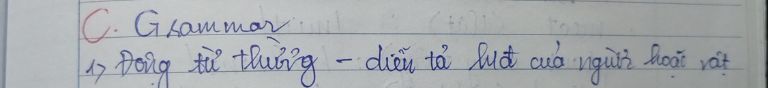 C. Grammar
1> Động từ thường - diễn tả của người hoặc vật